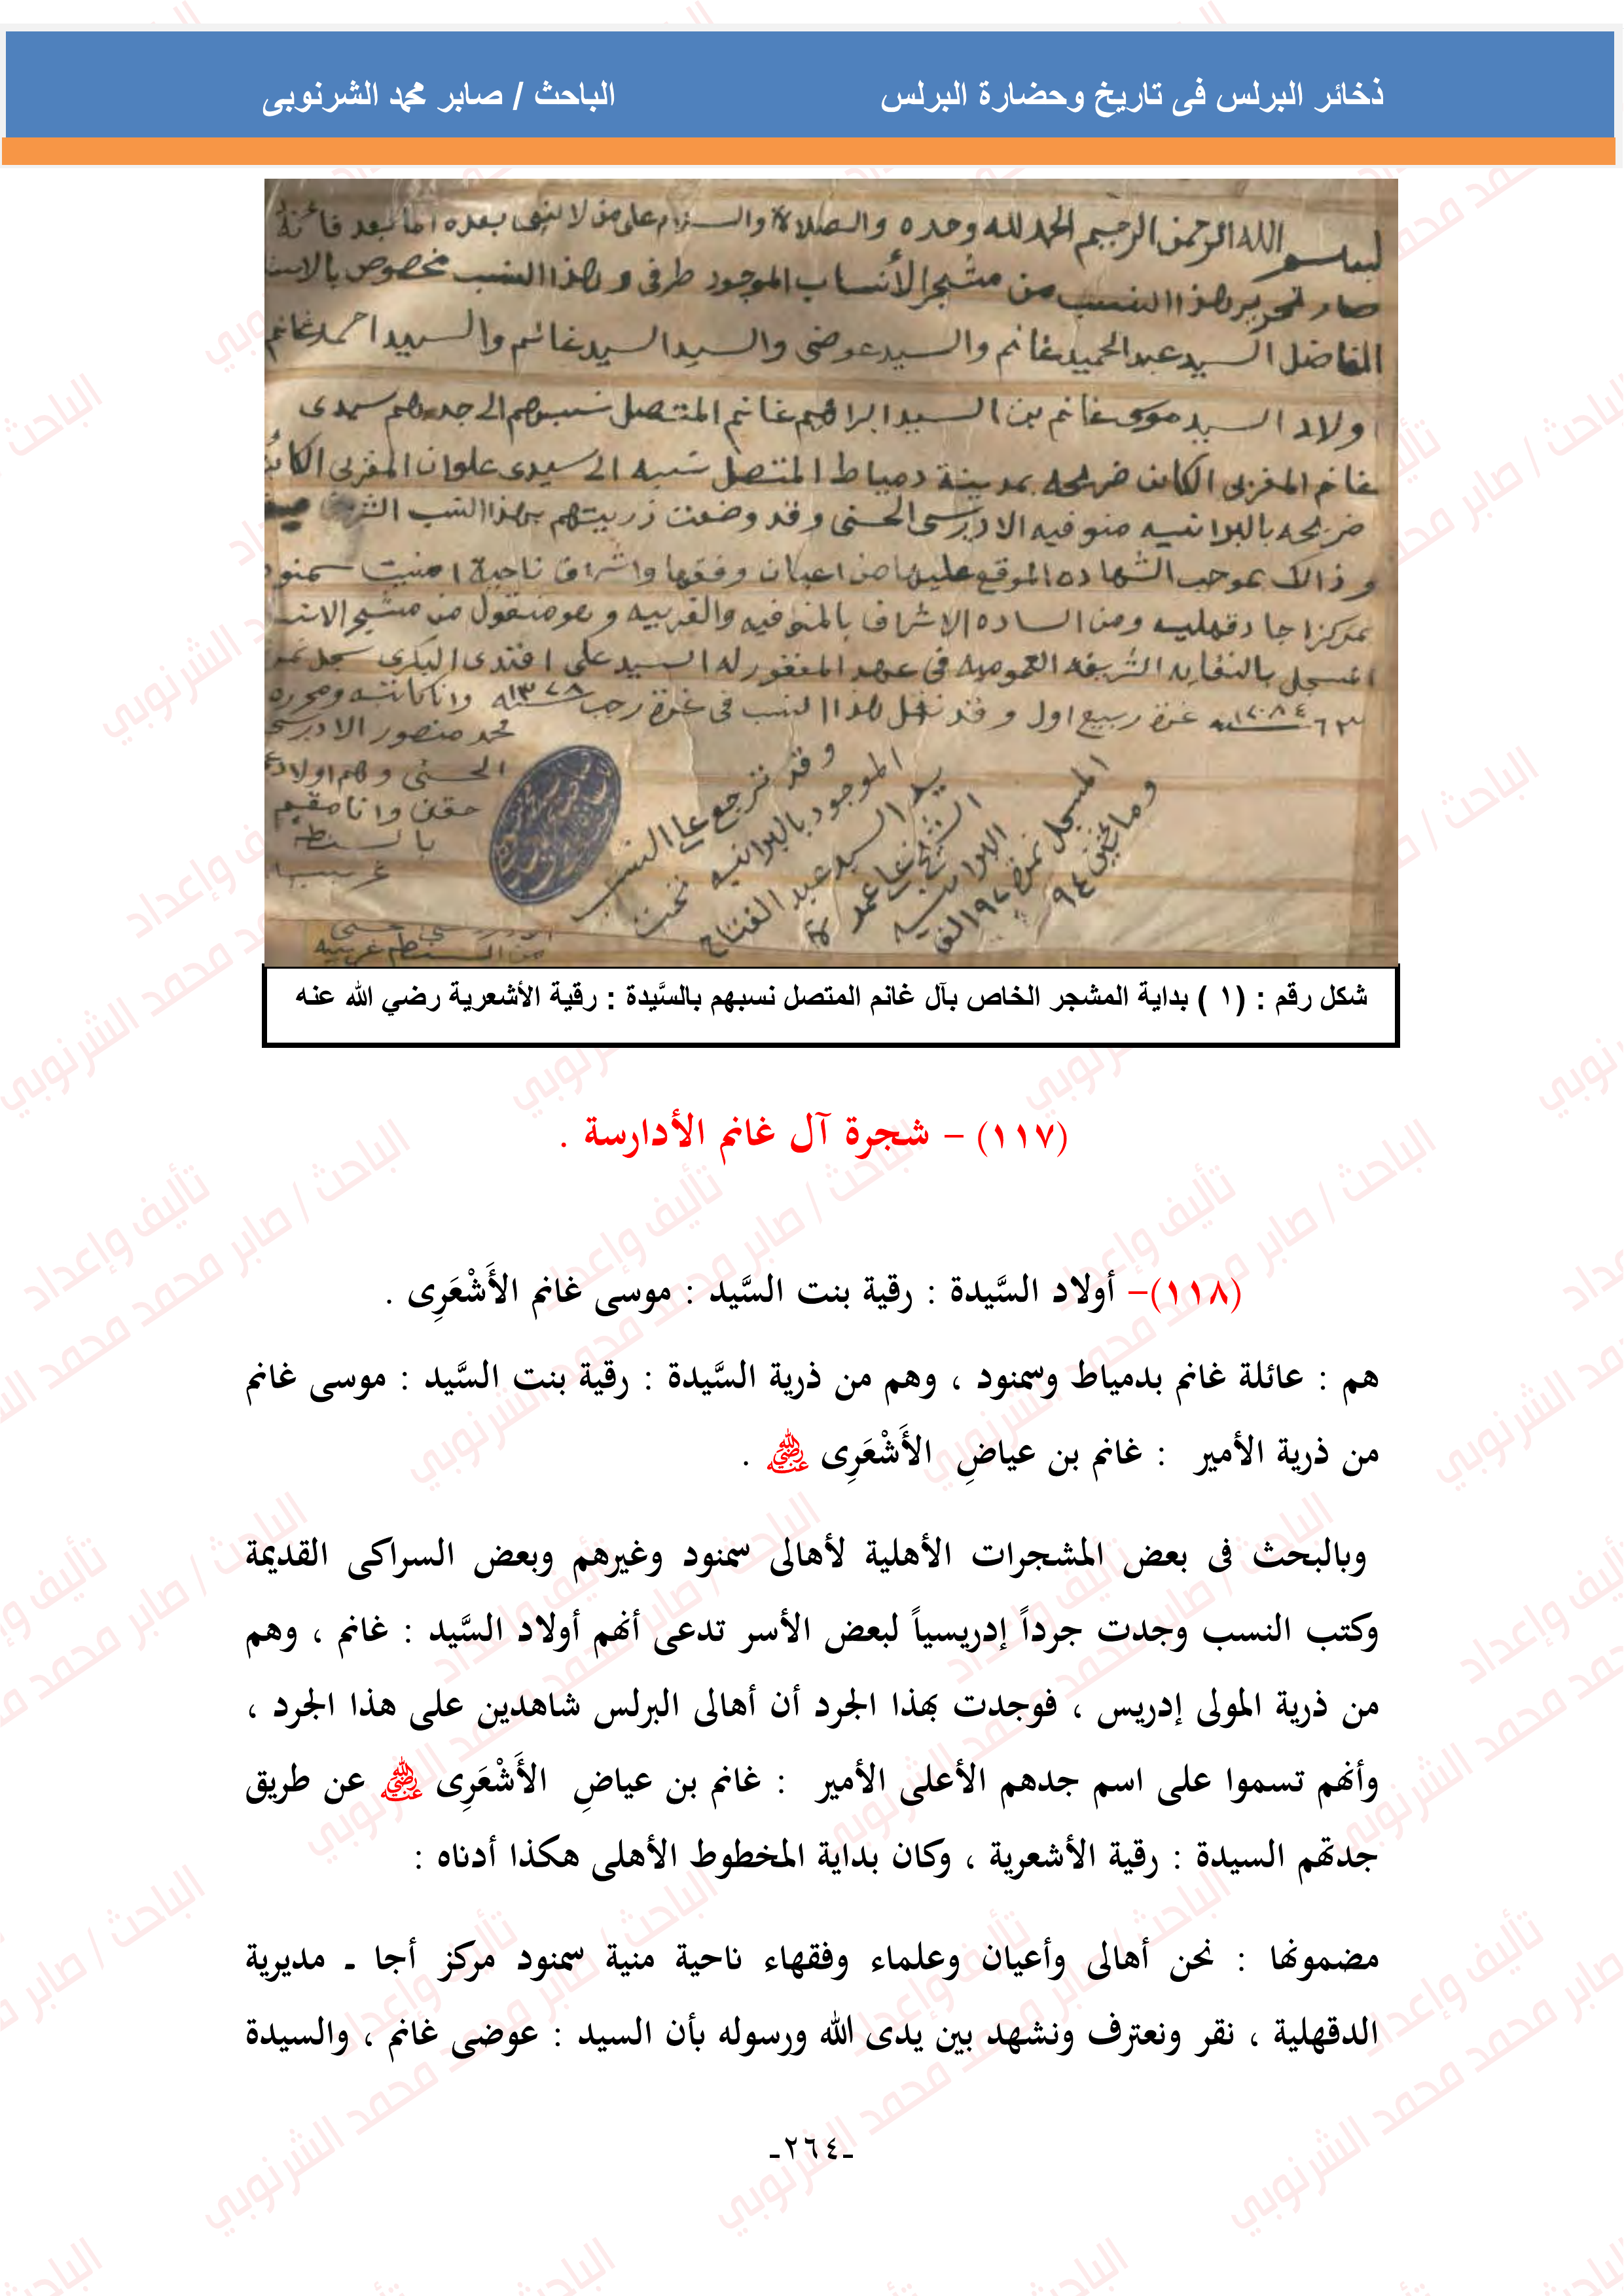 ذخائر البرلس فى تاريخ وحضارة البرلس
الباحث / صابر محمد الشرنوبى
بسم الله الرحمن الرحيم الحمد لله وحده والصلاة والسلام على من لا نبى بعده اما بعد فانه
صار تحرير هذا النسب من مشجر الأنساب الموجود طرفى وهذا النسب مخصوص
الفاضل السيد عبد الحميد غانم والسيد عوضى والسيد السيد غانم والسيد احمد غانم
اولاد السيد موسى غانم بن السيد ابراهيم غانم المتصل نسبهم الى جدهم سيدى
غانم المغربى الكائن ضريحه بمدينة دمياط المتصل نسبه الى سيدى علوان المغربى
ضريحه بالبرانيه منوفيه الادريسى الحسنى وقد وضعت ذريتهم بهذا النسب الشريف
وذالك بموجب الشهاده الموقع عليها من اعيان وفقها واشراف ناحية منيت سمنود
بمركز اجا دقهليه ومن الساده الاشراف بالمنوفيه والغربيه وهو منقول من مشجر
المسجل بالنقابه الشريفه العموميه فى عهد المغفور له السيد على افندى البكرى سجل نمر
٦٢ غرة ربيع اول وقد نقل هذا النسب فى غرة رجب سنه ١٣٧٨ وانا كاتبته ومحرره
محمد منصور الادريسى
الحسنى وهم اولاد
حقن وانا مقيم
بالسنطه
غربيه
وقد نرجع على النسب
الموجود بالبرانيه تحت
يد السيد عبد الفتاح
البرانيه
المسجل نمرة
ومائتين ٩٤
شكل رقم : (١ ) بداية المشجر الخاص بآل غانم المتصل نسبهم بالسَّيدة : رقية الأشعرية رضي الله عنه
(١١٧) – شجرة آل غانم الأدارسة .
(١١٨)– أولاد السَّيدة : رقية بنت السَّيد : موسى غانم الأَشْعَرِى .
هم : عائلة غانم بدمياط وسمنود ، وهم من ذرية السَّيدة : رقية بنت السَّيد : موسى غانم
من ذرية الأمير : غانم بن عياضِ الأَشْعَرِى رضي الله عنه .
وبالبحث فى بعض المشجرات الأهلية لأهالى سمنود وغيرهم وبعض السراكى القديمة
وكتب النسب وجدت جرداً إدريسياً لبعض الأسر تدعى أنهم أولاد السَّيد : غانم ، وهم
من ذرية المولى إدريس ، فوجدت بهذا الجرد أن أهالى البرلس شاهدين على هذا الجرد ،
وأنهم تسموا على اسم جدهم الأعلى الأمير : غانم بن عياضِ الأَشْعَرِى رضي الله عنه عن طريق
جدتهم السيدة : رقية الأشعرية ، وكان بداية المخطوط الأهلى هكذا أدناه :
مضمونها : نحن أهالى وأعيان وعلماء وفقهاء ناحية منية سمنود مركز أجا ـ مديرية
الدقهلية ، نقر ونعترف ونشهد بين يدى الله ورسوله بأن السيد : عوضى غانم ، والسيدة
-٢٦٤-